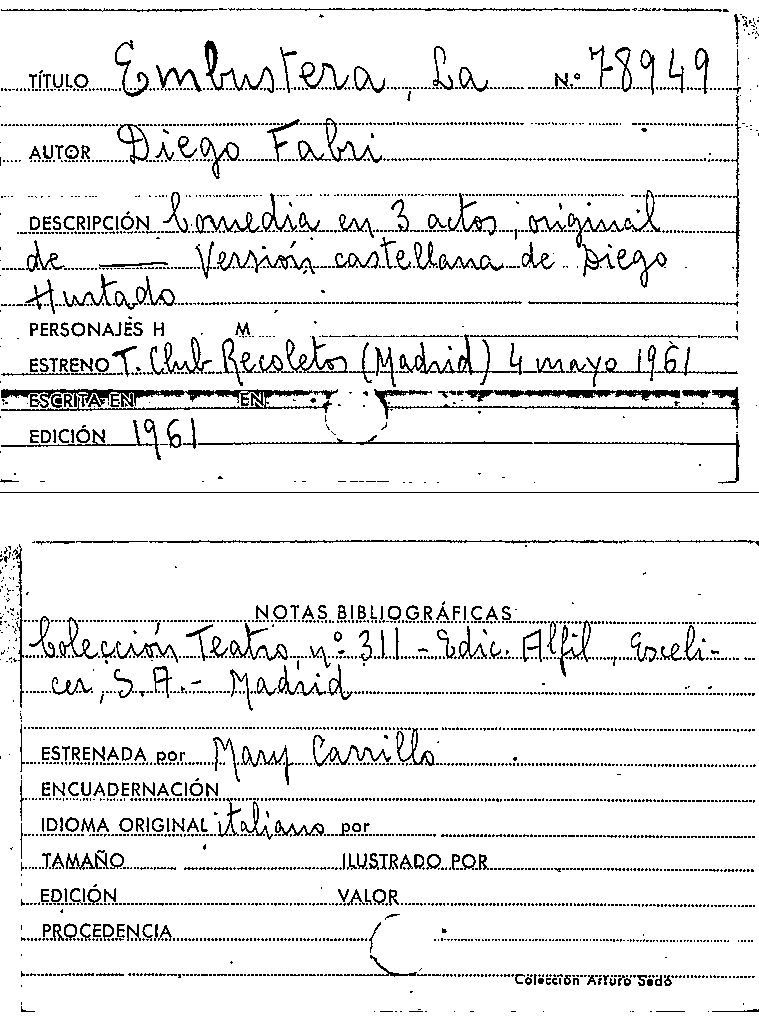 TÍTULO Embustera, La N.º 78949
AUTOR Diego Fabri
DESCRIPCIÓN Comedia en 3 actos, original
de —— Versión castellana de Diego
Hurtado
PERSONAJES H M
ESTRENO T. Club Recoletos (Madrid) 4 mayo 1961
ESCRITA EN EN
EDICIÓN 1961
NOTAS BIBLIOGRÁFICAS
Colección Teatro, nº 311 - Edic. Alfil, Esceli-
cer, S.A. - Madrid
ESTRENADA por Mary Carrillo
ENCUADERNACIÓN
IDIOMA ORIGINAL italiano por
TAMAÑO ILUSTRADO POR
EDICIÓN VALOR
PROCEDENCIA
Colección Arturo Sedó